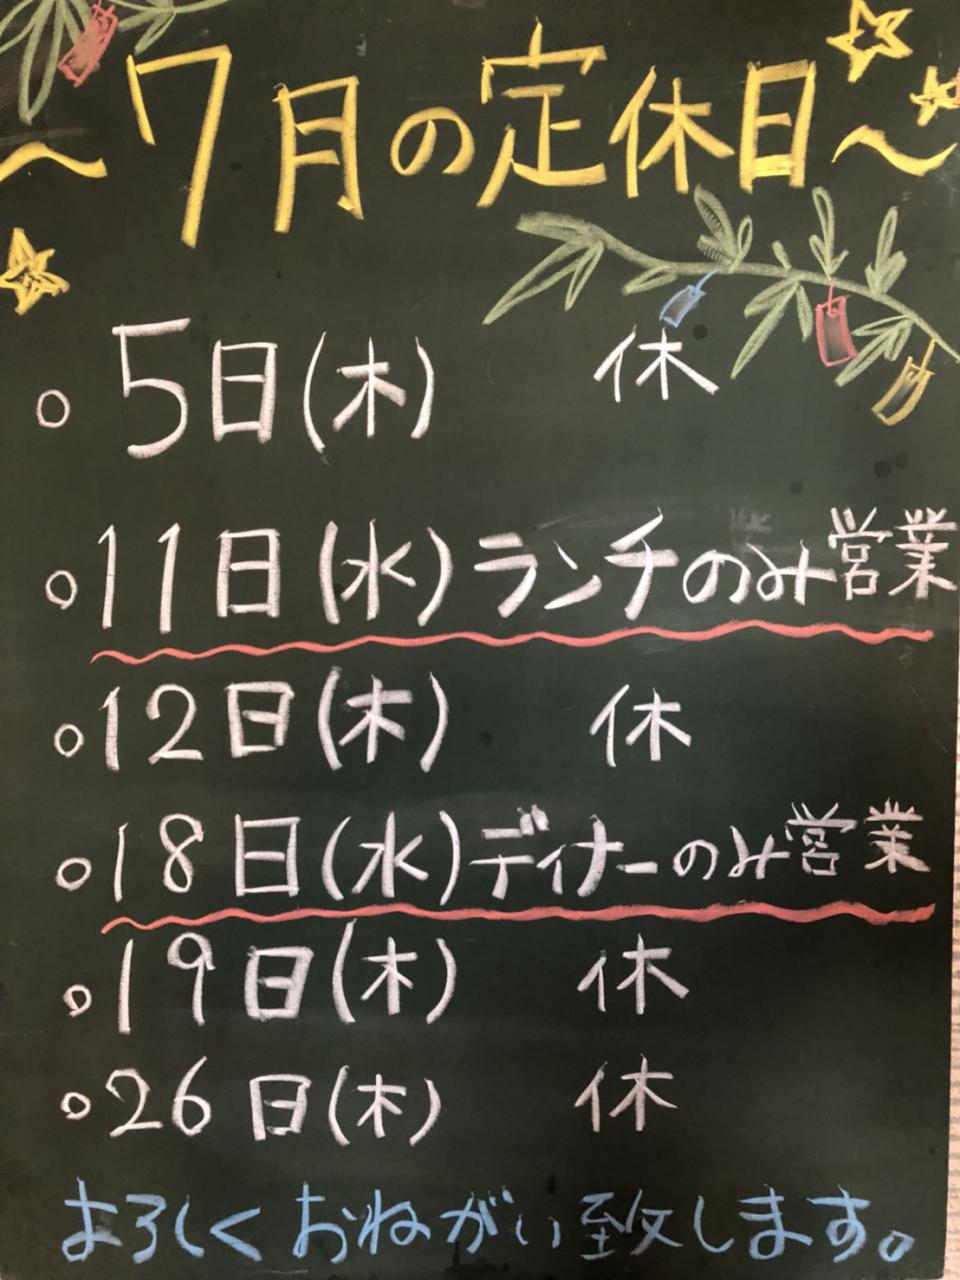 ～7月の定休日～
○5日(木) 休
○11日(水)ランチのみ営業
○12日(木) 休
○18日(水)ディナーのみ営業
○19日(木) 休
○26日(木) 休
よろしくおねがい致します。